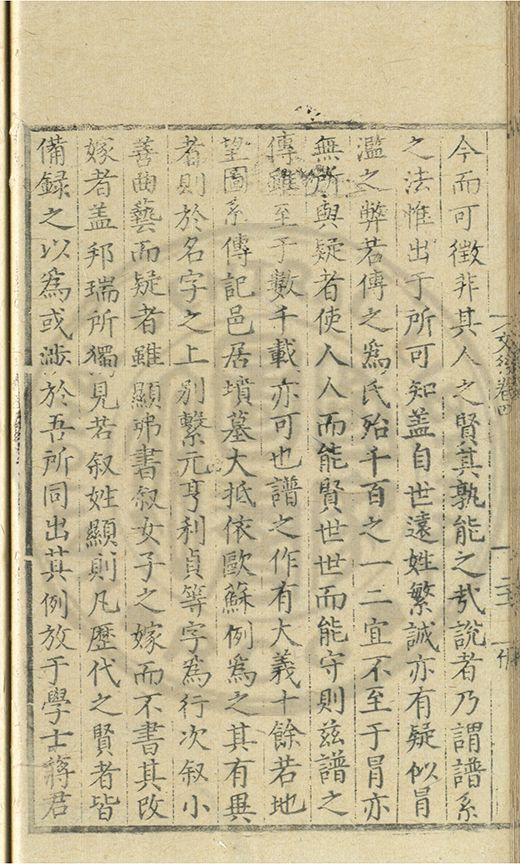 今而可徵非其人之賢其孰能之哉說者乃謂譜系
之法惟出于所可知盖自世遠姓繁誠亦有疑似冐
濫之弊若傳之爲氏殆千百之一二宜不至于冐亦
無所與疑者使人人而能賢世世而能守則兹譜之
傳雖至于數千載亦可也譜之作有大義十餘若地
望圖系傳記邑居墳墓大抵依歐蘇例爲之其有異
者則於名字之上别繫元亨利貞等字爲行次叙小
善曲藝而疑者雖顯弗書叙女子之嫁而不書其改
嫁者盖邦瑞所獨見若叙姓顯則凡歷代之賢者皆
備録之以爲或渉於吾所同出其例放于學士蔣君
文後卷四
二